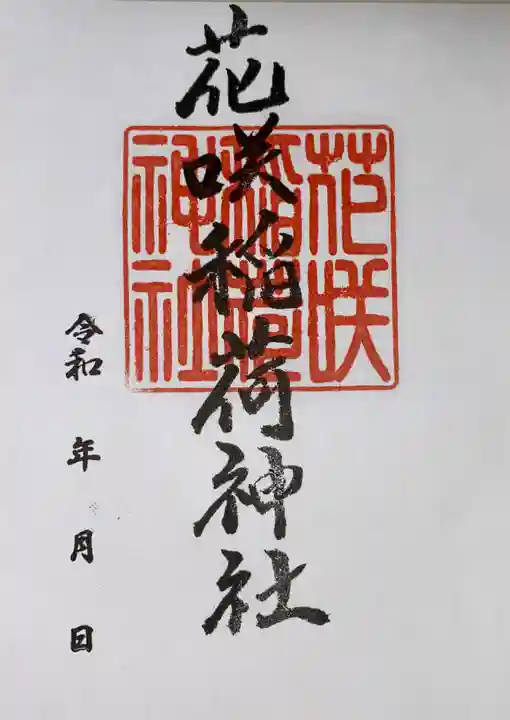 花咲稲荷神社
花咲
稲荷
神社
令和 年 月 日